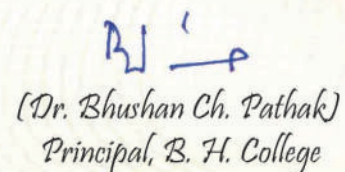 (Dr. Bhushan Ch. Pathak)
Principal, B. H. College